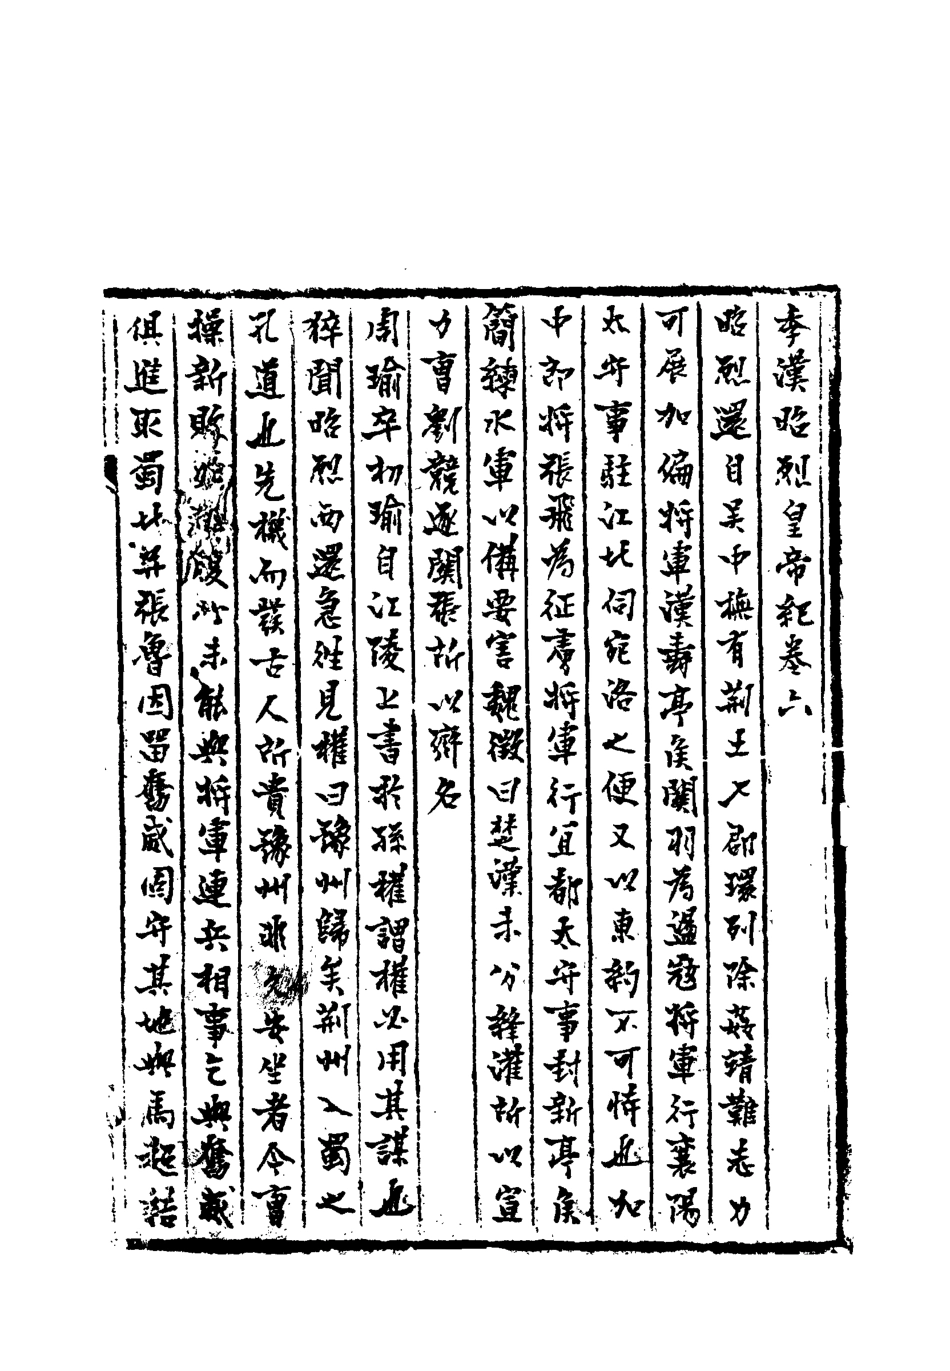 季漢昭烈皇帝紀卷六
昭烈還自吳中撫有荊土八郡環列除茲靖難志力
可展加偏將軍漢壽亭侯關羽為盪寇將軍行襄陽
太守事駐江北伺宛洛之便又以東約不可恃也加
中郎將張飛為征虜將軍行宜都太守事封新亭侯
簡練水軍以備要害魏徵曰楚漢未分絳灌所以宣
力曹劉競逐關張所以齊名
周瑜卒初瑜自江陵上書於孫權謂權必用其謀也
猝聞昭烈西還急往見權曰豫州歸矣荊州入蜀之
孔道也先機而發古人所貴豫州非久安坐者今曹
操新敗始 腹心未能與將軍連兵相事乞與奮威
俱進取蜀北并張魯因留奮威固守其地與馬超結